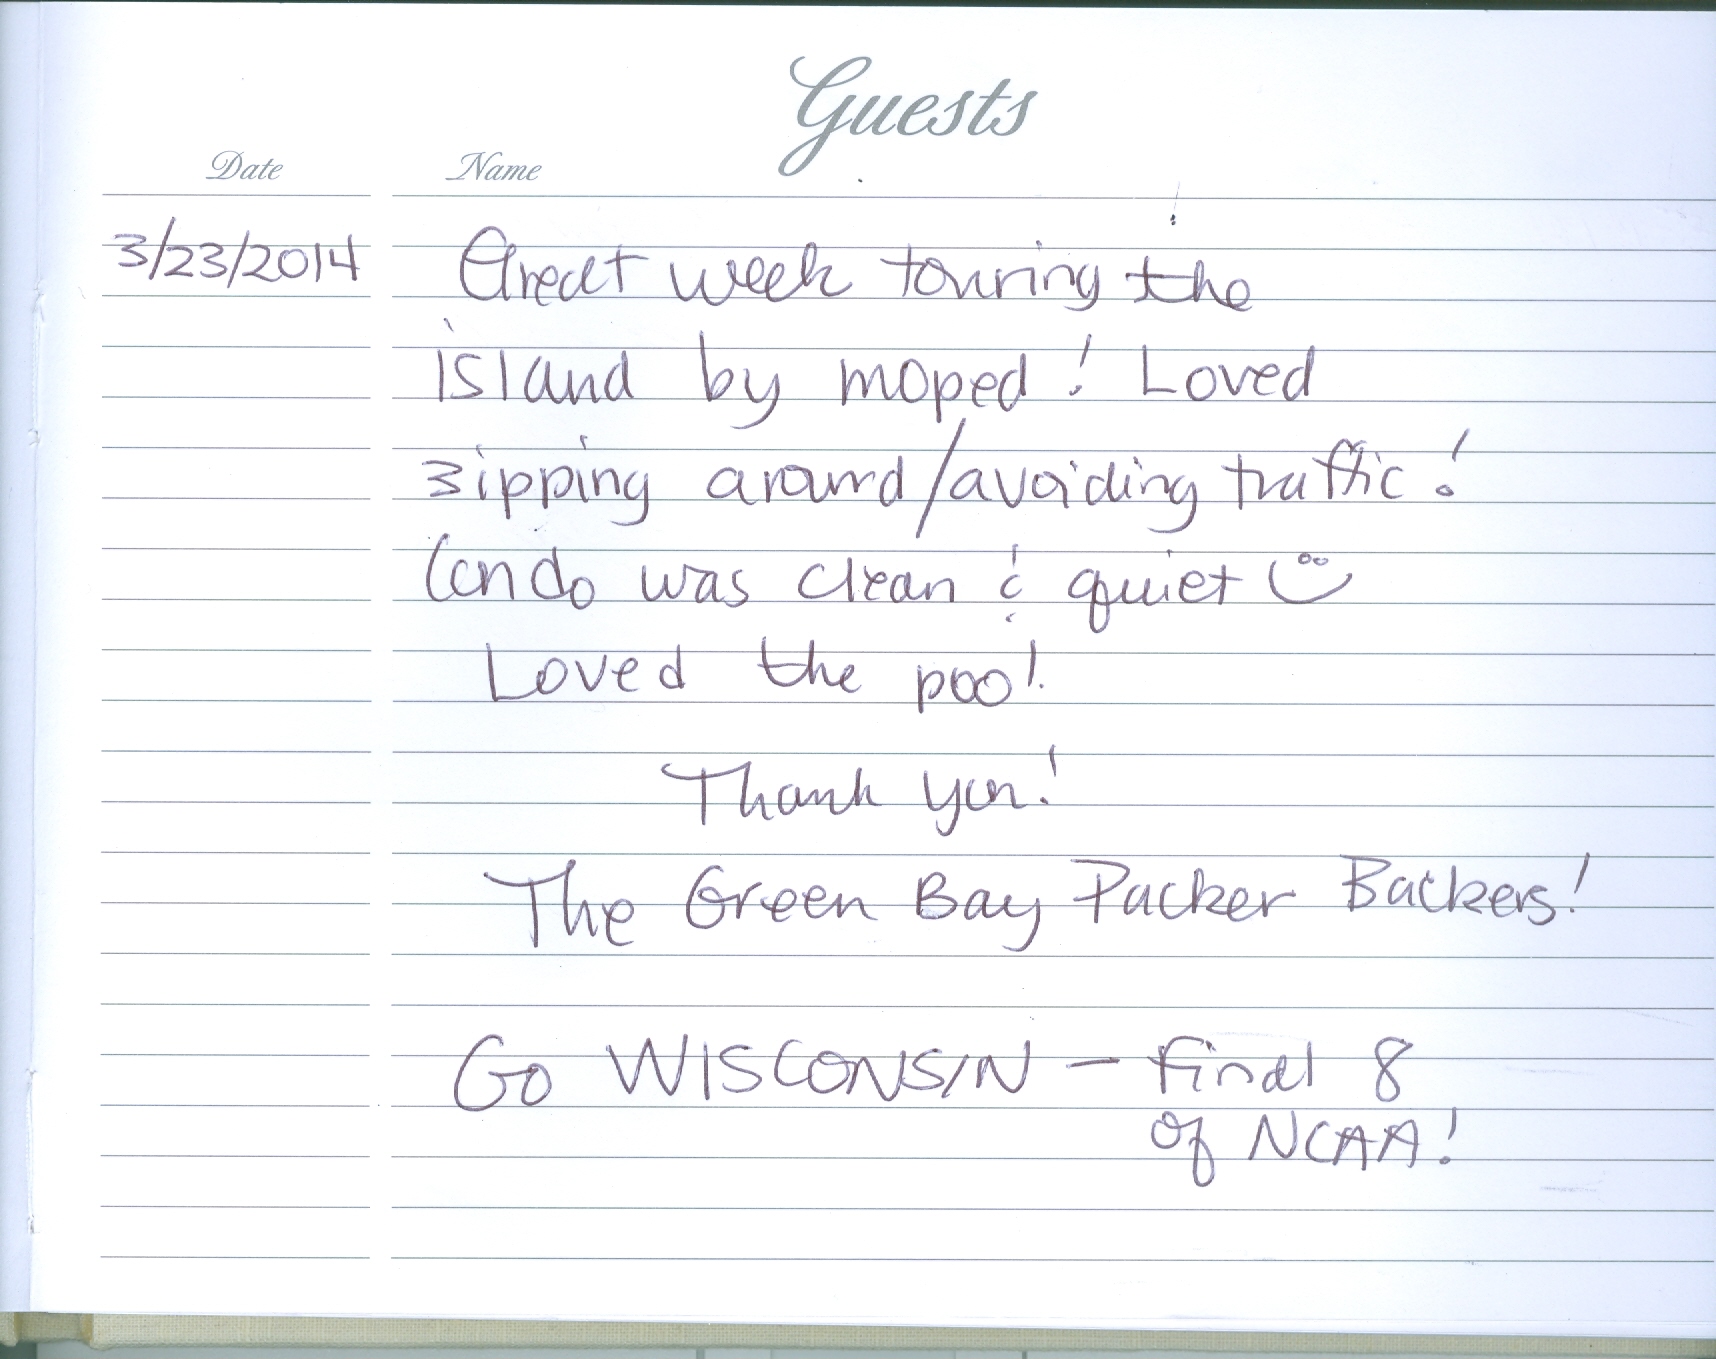 Guests
Date Name
3/23/2014 Great week touring the
island by moped! Loved
zipping around/avoiding traffic!
Condo was clean & quiet
Loved the pool.
Thank you!
The Green Bay Packer Backers!
Go WISCONSIN - final 8
of NCAA!